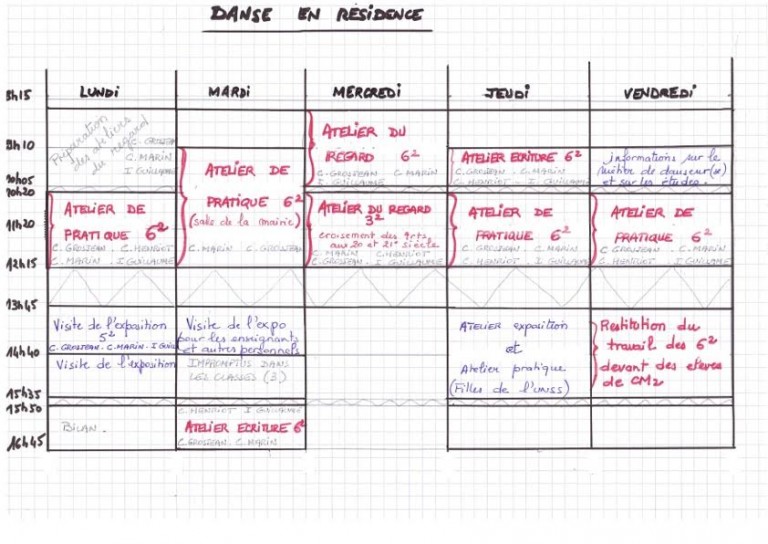 DANSE EN RÉSIDENCE
LUNDI MARDI MERCREDI JEUDI VENDREDI
8h15
9h10
10h05
10h20
11h20
12h15
13h45
14h40
15h35
15h50
16h45
Préparation
des ateliers
du regard
C. GROSJEAN
C. MARIN
I GUILLAUME
ATELIER DE
PRATIQUE 6²
C. GROSJEAN . C. HENRIOT
C. MARIN . I GUILLAUME
Visite de l'exposition
5²
C. GROSJEAN . C. MARIN . I GUIL
Visite de l'exposition
BILAN .
ATELIER DE
PRATIQUE 6²
(salle de la mairie)
C. MARIN . C. GROSJEAN
Visite de l'expo
pour les enseignants
et autres personnels
IMPROMPTUS DANS
LES CLASSES (3)
C. HENRIOT I GUILLAUME
ATELIER ECRITURE 6²
C. GROSJEAN . C. MARIN
ATELIER DU
REGARD 6²
C. GROSJEAN C MARIN
I. GUILLAUME
ATELIER DU REGARD
3²
croisement des arts,
aux 20 et 21e siècle
C. MARIN C HENRIOT
C. GROSJEAN . I. GUILLAUME
ATELIER ECRITURE 6²
C. GROSJEAN . C. MARIN
C. HENRIOT . I GUILLAUME
ATELIER DE
PRATIQUE 6²
C. GROSJEAN . C. MARIN
C. HENRIOT . I GUILLAUME
ATELIER exposition
et
Atelier pratique
(Filles de l'UNSS)
informations sur le
métier de danseur(se)
et sur les études.
ATELIER DE
PRATIQUE 6²
C. GROSJEAN . C. MARIN
C. HENRIOT . I GUILLAUME
Restitution du
travail des 6²
devant des élèves
de CM2